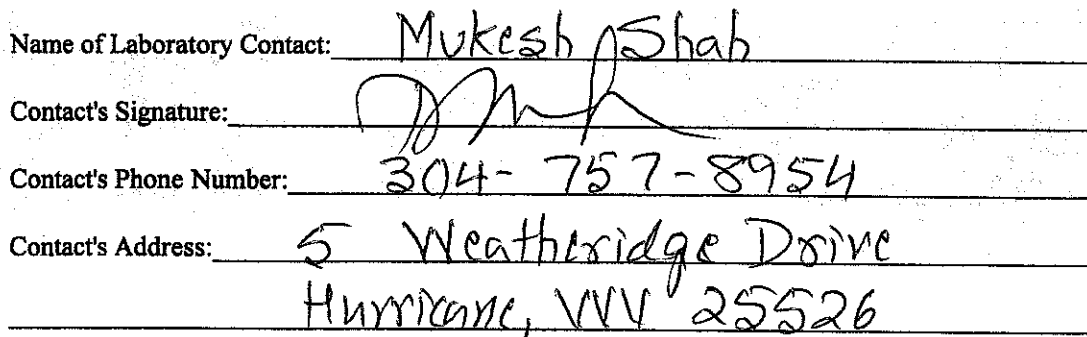 Name of Laboratory Contact: Mukesh Shah
Contact's Signature:
Contact's Phone Number: 304-757-8954
Contact's Address: 5 Weatheridge Drive
Hurricane, WV 25526